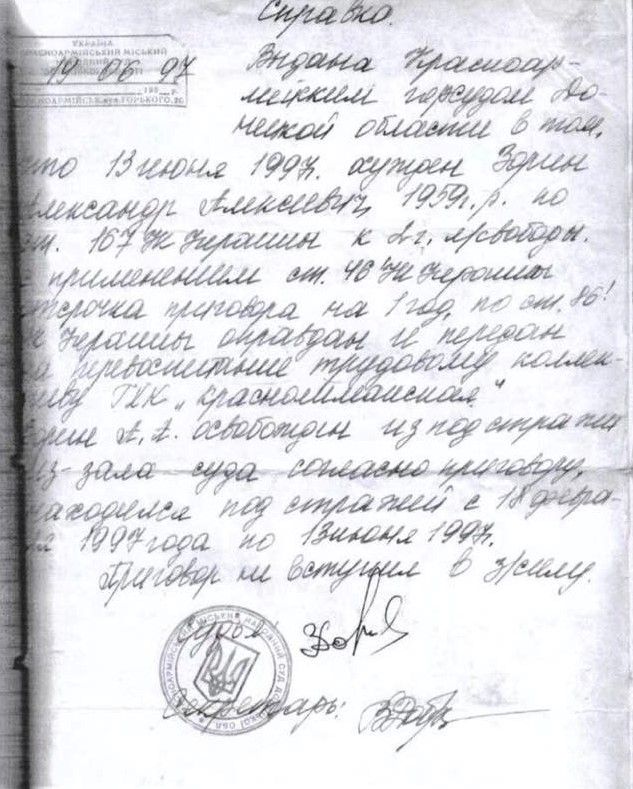 Справка.
УКРАЇНА
КРАСНОАРМІЙСЬКИЙ МІСЬКИЙ
19 06 97
199 р.
КРАСНОАРМІЙСЬК, вул. ГОРЬКОГО, 20
Выдана Красноар-
мейским горсудом До-
нецкой области в том,
что 13 июня 1997г. осужден Зорин
Александр Алексеевич, 1959г.р. по
ст. 167 УК Украины к 2 г. л/свободы.
с применением ст. 46 УК Украины
отсрочка приговора на 1 год, по ст. 86¹
УК Украины оправдан и передан
на перевоспитание трудовому коллек-
тиву ГХК „Краснолиманская"
Зорин А. А. освобожден из под стражи
из-зала суда согласно приговору,
находился под стражей с 18 февра-
ля 1997 года по 13 июня 1997г.
Приговор не вступил в з/силу.
Судья
Секретарь: